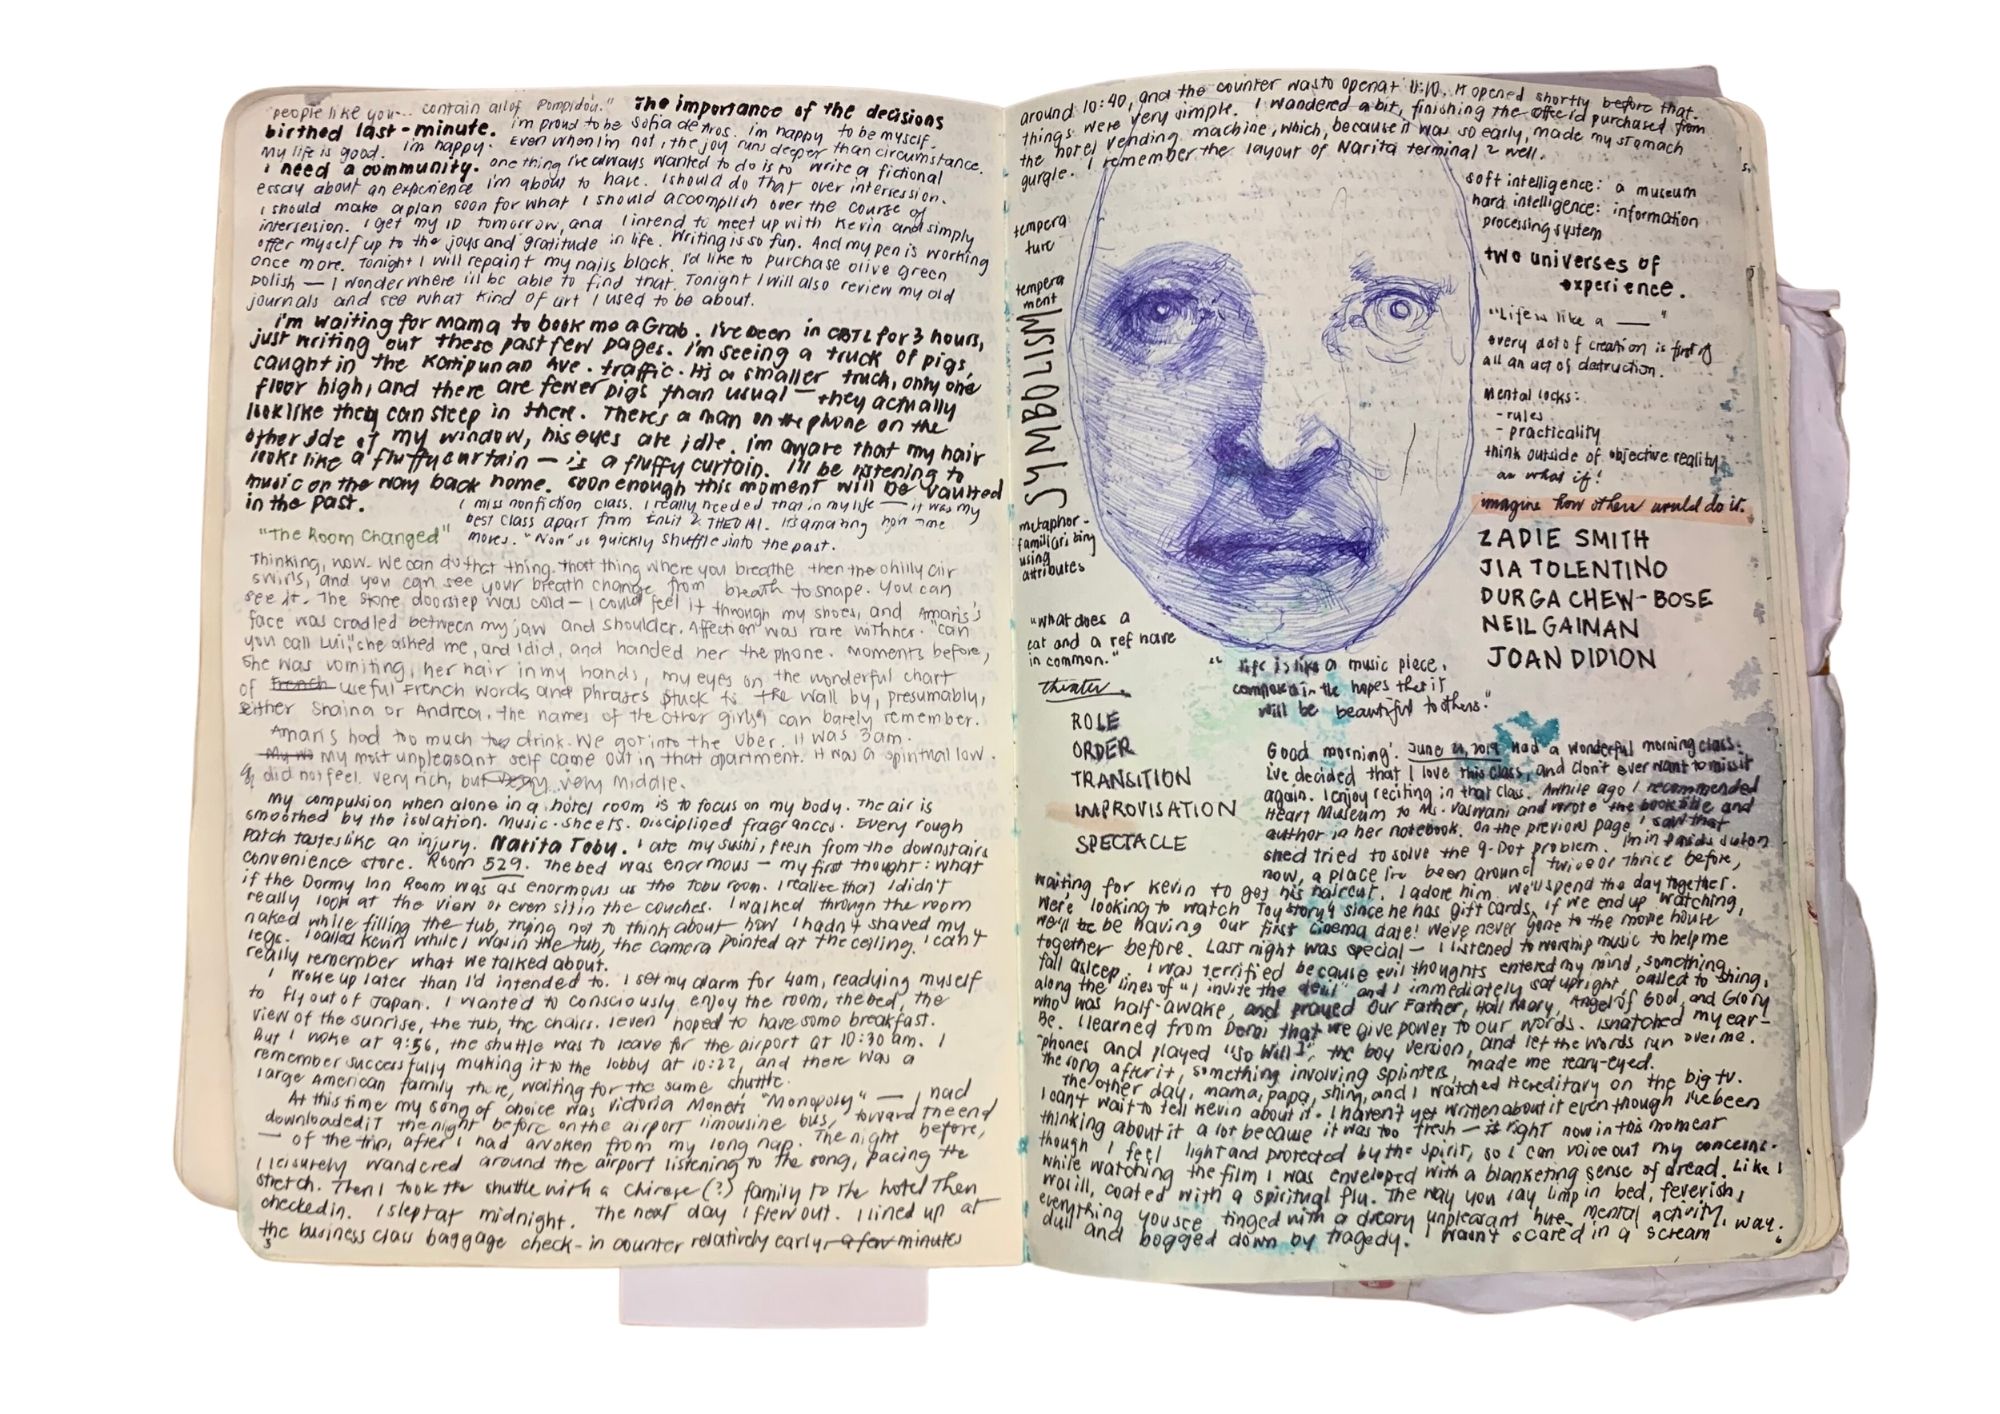 "people like you... contain all of Pompidou." The importance of the decisions
birthed last-minute. i'm proud to be Sofia de Aros. i'm happy to be myself.
My life is good. i'm happy. Even when i'm not, the joy runs deeper than circumstance.
I need a community. one thing i've always wanted to do is to write a fictional
essay about an experience i'm about to have. I should do that over intersession.
I should make a plan soon for what I should accomplish over the course of
intersession. I get my ID tomorrow, and I intend to meet up with Kevin and simply
offer myself up to the joys and gratitude in life. Writing is so fun. And my pen is working
once more. Tonight I will repaint my nails black. I'd like to purchase olive green
polish — I wonder where i'll be able to find that. Tonight I will also review my old
journals and see what kind of art I used to be about.
I'm waiting for Mama to book me a Grab. I've been in CBTL for 3 hours,
just writing out these past few pages. I'm seeing a truck of pigs,
caught in the Katipunan Ave. traffic. It's a smaller truck, only one
floor high, and there are fewer pigs than usual — they actually
look like they can sleep in there. There's a man on the phone on the
other side of my window, his eyes are idle. I'm aware that my hair
looks like a fluffy curtain — is a fluffy curtain. I'll be listening to
music on the way back home. Soon enough this moment will be vaulted
in the past.
I miss nonfiction class. I really needed that in my life — it was my
best class apart from EnLit & THEO 141. It's amazing how time
moves. "Now" so quickly shuffles into the past.
"The Room Changed"
Thinking, now. We can do that thing. That thing where you breathe then the chilly air
swirls, and you can see your breath change from breath to shape. You can
see it. The stone doorstep was cold — I could feel it through my shoes, and Amaris's
face was cradled between my jaw and shoulder. Affection was rare with her. "can
you call Lui," she asked me, and I did, and handed her the phone. Moments before,
she was vomiting, her hair in my hands, my eyes on the wonderful chart
of French useful French words and phrases stuck to the wall by, presumably,
either Shaina or Andrea. The names of the other girls I can barely remember.
Amaris had too much to drink. We got into the Uber. It was 3am.
my most unpleasant self came out in that apartment. It was a spiritual low.
I did not feel very rich, but very middle.
My compulsion when alone in a hotel room is to focus on my body. The air is
smoothed by the isolation. Music. sheets. Disciplined fragrances. Every rough
patch tastes like an injury. Narita Tobu. I ate my sushi, fresh from the downstairs
convenience store. Room 529. The bed was enormous — my first thought: what
if the Dormy Inn Room was as enormous as the Tobu room. I realize that I didn't
really look at the view or even sit in the couches. I walked through the room
naked while filling the tub, trying not to think about how I hadn't shaved my
legs. I called Kevin while I was in the tub, the camera pointed at the ceiling. I can't
really remember what we talked about.
I woke up later than I'd intended to. I set my alarm for 4am, readying myself
to fly out of Japan. I wanted to consciously enjoy the room, the bed, the
view of the sunrise, the tub, the chairs. I even hoped to have some breakfast.
But I woke at 9:56, the shuttle was to leave for the airport at 10:30 am. I
remember successfully making it to the lobby at 10:22, and there was a
large American family there, waiting for the same shuttle.
At this time my song of choice was Victoria Monét's "Monopoly" — I had
downloaded it the night before on the airport limousine bus, toward the end
— of the trip, after I had awoken from my long nap. The night before,
I leisurely wandered around the airport listening to the song, pacing the
stretch. Then I took the shuttle with a Chinese (?) family to the hotel then
checked in. I slept at midnight. The next day I flew out. I lined up at
the business class baggage check-in counter relatively early, a few minutes
around 10:40, and the counter was to open at 11:10. It opened shortly before that.
things were very simple. I wandered a bit, finishing the coffee I'd purchased from
the hotel vending machine, which, because it was so early, made my stomach
gurgle. I remember the layout of Narita terminal 2 well.
tempera
ture
tempera
ment
SYMBOLISM
metaphor-
familiarizing
using
attributes
"what does a
cat and a ref have
in common."
soft intelligence: a museum
hard intelligence: information
processing system
two universes of
experience.
"Life is like a ___"
every act of creation is first of
all an act of destruction.
mental locks:
- rules
- practicality
think outside of objective reality
as what if?
imagine how others would do it.
ZADIE SMITH
JIA TOLENTINO
DURGA CHEW-BOSE
NEIL GAIMAN
JOAN DIDION
"life is like a music piece,
composed in the hopes that it
will be beautiful to others."
theater
ROLE
ORDER
TRANSITION
IMPROVISATION
SPECTACLE
Good morning! June 21, 2019 Had a wonderful morning class.
i've decided that I love this class, and don't ever want to miss it
again. I enjoy reciting in that class. Awhile ago I recommended
Heart Museum to Ms. Vaswani and wrote the book title and
author in her notebook. On the previous page I saw that
she'd tried to solve the 9-Dot problem. I'm in salon
now, a place I've been around twice or thrice before,
waiting for Kevin to get his haircut. I adore him. We'll spend the day together.
We're looking to watch Toy Story 4 since he has gift cards. If we end up watching,
we'll be having our first cinema date! We've never gone to the movie house
together before. Last night was special — I listened to worship music to help me
fall asleep. I was terrified because evil thoughts entered my mind, something
along the lines of "I invite the devil" and I immediately sat upright called to Shing,
who was half-awake, and prayed Our Father, Hail Mary, Angel of God, and Glory
Be. I learned from Domi that we give power to our words. I snatched my ear-
phones and played "So Will I", the boy version, and let the words run over me.
The song after it, something involving splinters, made me teary-eyed.
The other day, mama, papa, shing, and I watched Hereditary on the big tv.
I can't wait to tell Kevin about it. I haven't yet written about it even though I've been
thinking about it a lot because it was too fresh — it right now in this moment
though I feel light and protected by the spirit, so I can voice out my concerns.
While watching the film I was enveloped with a blanketing sense of dread. Like I
was ill, coated with a spiritual flu. The way you lay limp in bed, feverish,
everything you see tinged with a dreary unpleasant hue, mental activity
dull and bogged down by tragedy. I wasn't scared in a scream way.